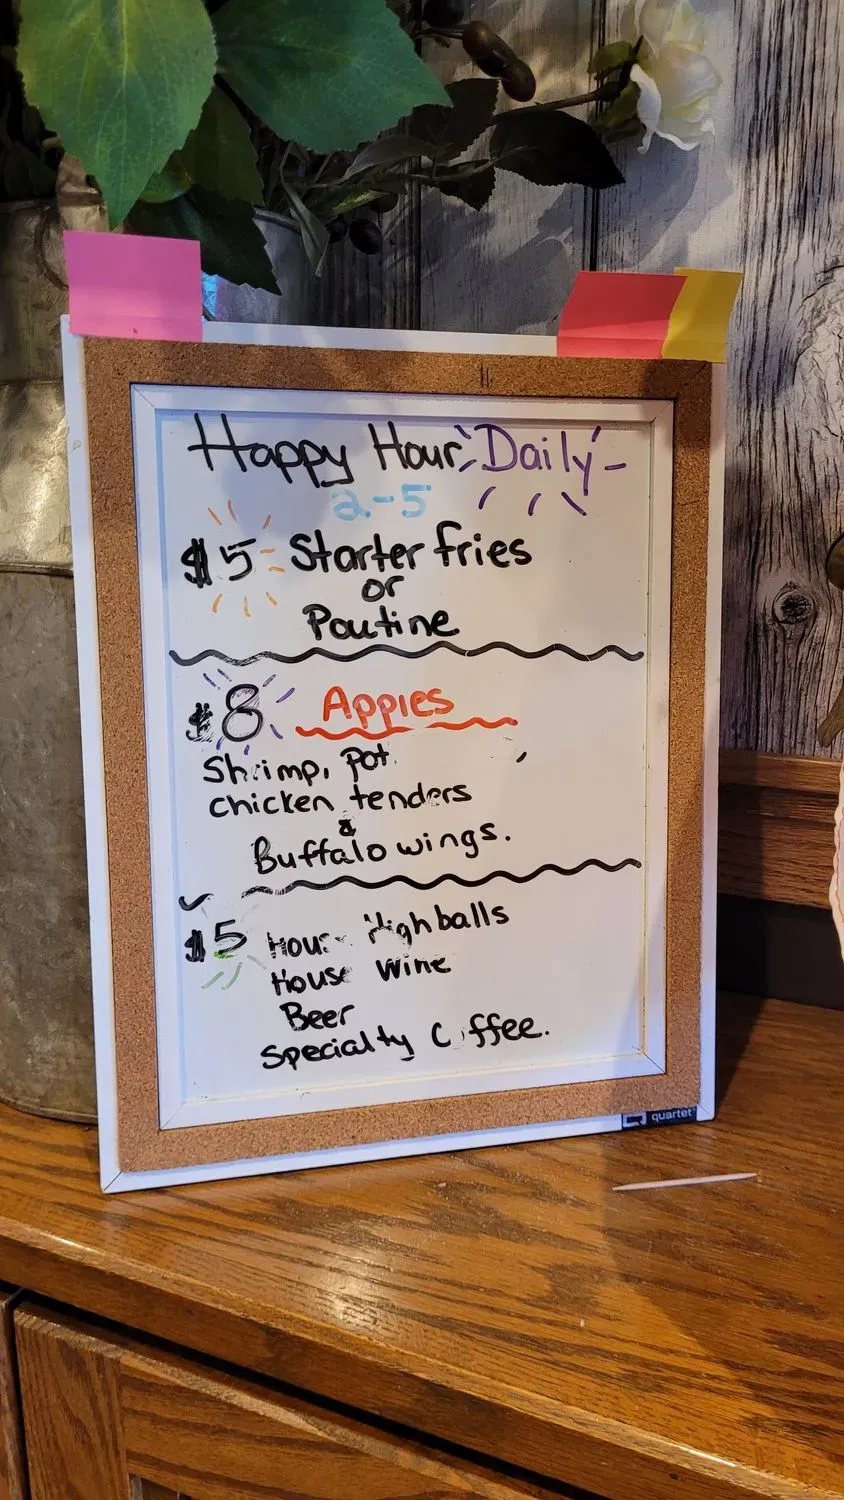 Happy Hour Daily
2-5
$5 Starter fries
or
Poutine
$8 Appies
Shrimp, Pot
chicken tenders
&
Buffalo wings.
$5 House Highballs
House wine
Beer
Specialty Coffee.
quartet